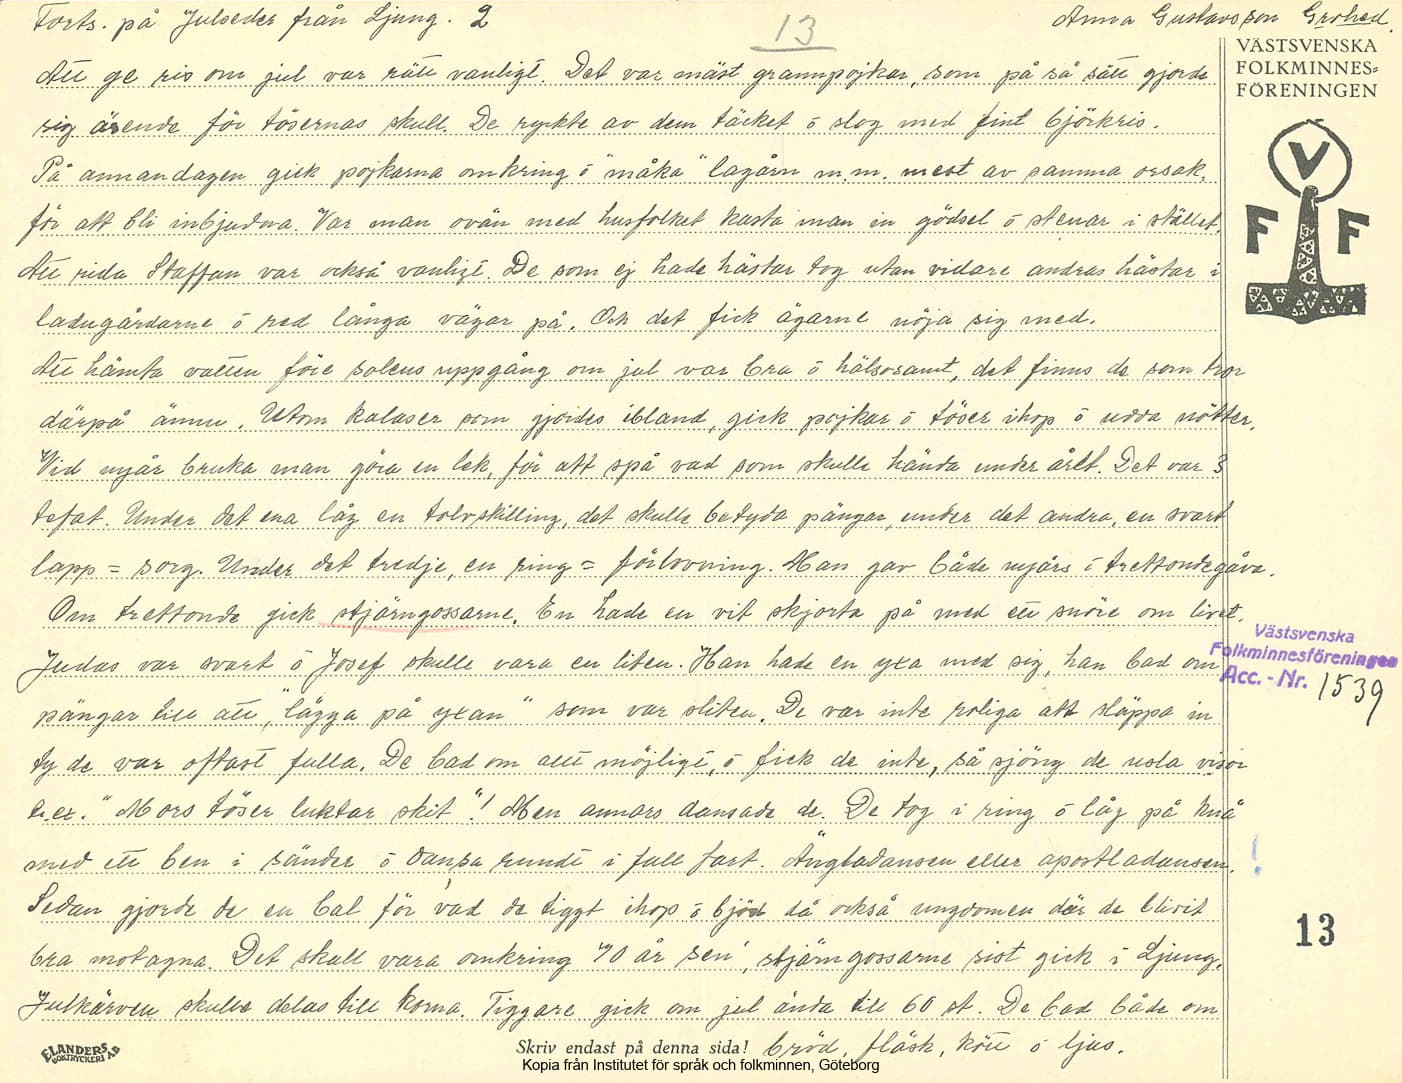 Forts. på Julseder från Ljung. 2
13
Anna Gustavsson Grohed.
VÄSTSVENSKA
FOLKMINNES=
FÖRENINGEN
V
F F
Att ge ris om jul var rätt vanligt. Det var mäst grannpojkar, som på så sätt gjorde
sig ärende för tösernas skull. De ryckte av dem täcket ö slog med fint björkris.
På annandagen gick pojkarna omkring ö "måka" lagårn m.m. mest av samma orsak,
för att bli inbjudna. Var man ovän med husfolket kasta man in gödsel ö stenar i stället.
Att rida Staffan var också vanligt. De som ej hade hästar tog utan vidare andras hästar i
ladugårdarne ö red långa vägar på. Och det fick ägarne nöja sig med.
Att hämta vatten före solens uppgång om jul var bra ö hälsosamt, det finns de som tror
därpå ännu. Utom kalaser som gjordes ibland, gick pojkar ö töser ihop ö udda nötter.
Vid nyår bruka man göra en lek, för att spå vad som skulle hända under året. Det var 3
tefat. Under det ena låg en tolvskilling, det skulle betyda pängar, under det andra, en svart
lapp = sorg. Under det tredje, en ring = förlovning. Man gav både nyårs ö trettondegåva.
Om trettonde gick stjärngossarne. En hade en vit skjorta på med ett snöre om livet.
Judas var svart ö Josef skulle vara en liten. Han hade en yxa med sig, han bad om
pängar till att, "lägga på yxan" som var sliten. De var inte roliga att släppa in
ty de var oftast fulla. De bad om allt möjligt, ö fick de inte, så sjöng de usla visor
t.ex. "Mors töser luktar skit"! Men annars dansade de. De tog i ring ö låg på knä
med ett ben i sänder ö dansa rundt i full fart. "Ängladansen eller apostladansen.
!
Sedan gjorde de en bal för vad de tiggt ihop ö bjöd då också ungdomen där de blivit
bra motagna. Det skall vara omkring 70 år sen, stjärngossarne sist gick i Ljung.
Julkärven skulle delas till korna. Tiggare gick om jul ända till 60 st. De bad både om
bröd, fläsk, kött ö ljus.
Västsvenska
Folkminnesföreningen
Acc.-Nr. 1539
13
ELANDERS
BOKTRYCKERI AB
Skriv endast på denna sida!
Kopia från Institutet för språk och folkminnen, Göteborg